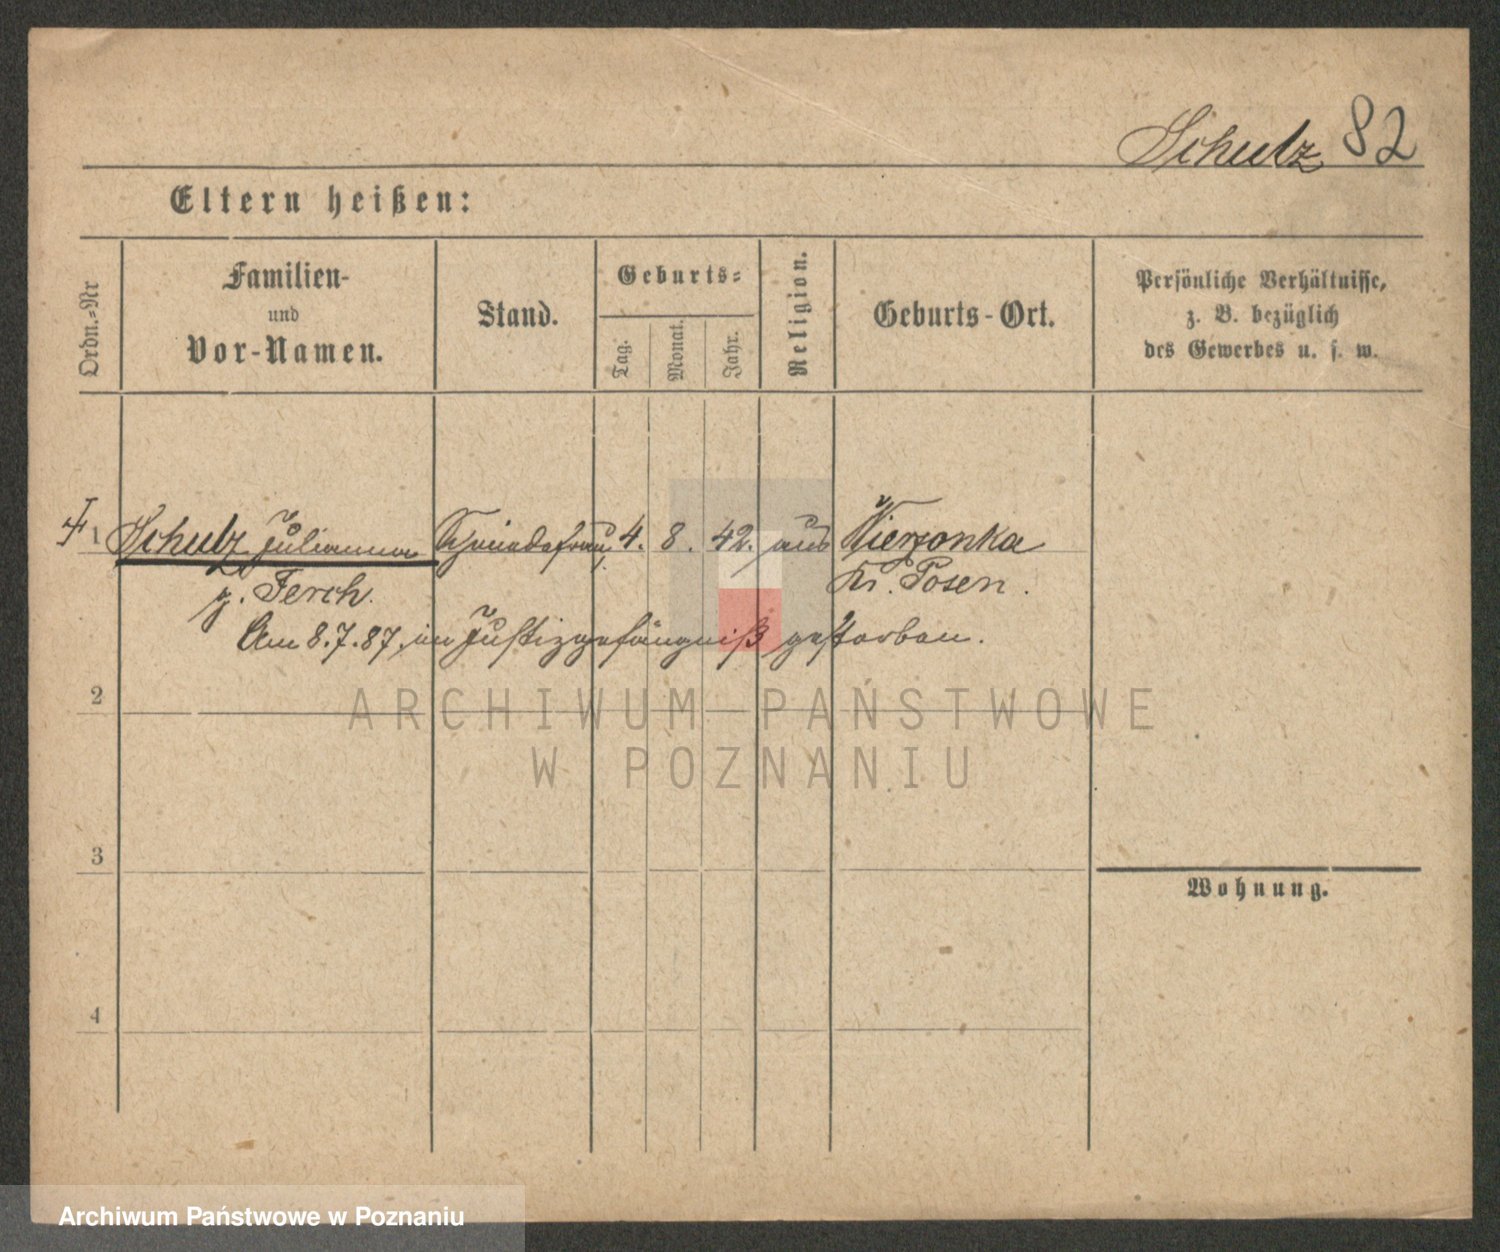 Schulz 82
Eltern heißen:
Ordn.-Nr
Familien-
und
Vor-Namen.
Stand.
Geburts-
Tag.
Monat.
Jahr.
Religion.
Geburts-Ort.
Persönliche Verhältnisse,
z. B. bezüglich
des Gewerbes u. s. w.
1 Schulz Julianna 4. 8. 42. aus Wierzonka
g. Ferch. Kr. Posen.
Am 8.7.87. im Justizgefängniß gestorben.
2
ARCHIWUM PAŃSTWOWE
W POZNANIU
3
Wohnung.
4
Archiwum Państwowe w Poznaniu